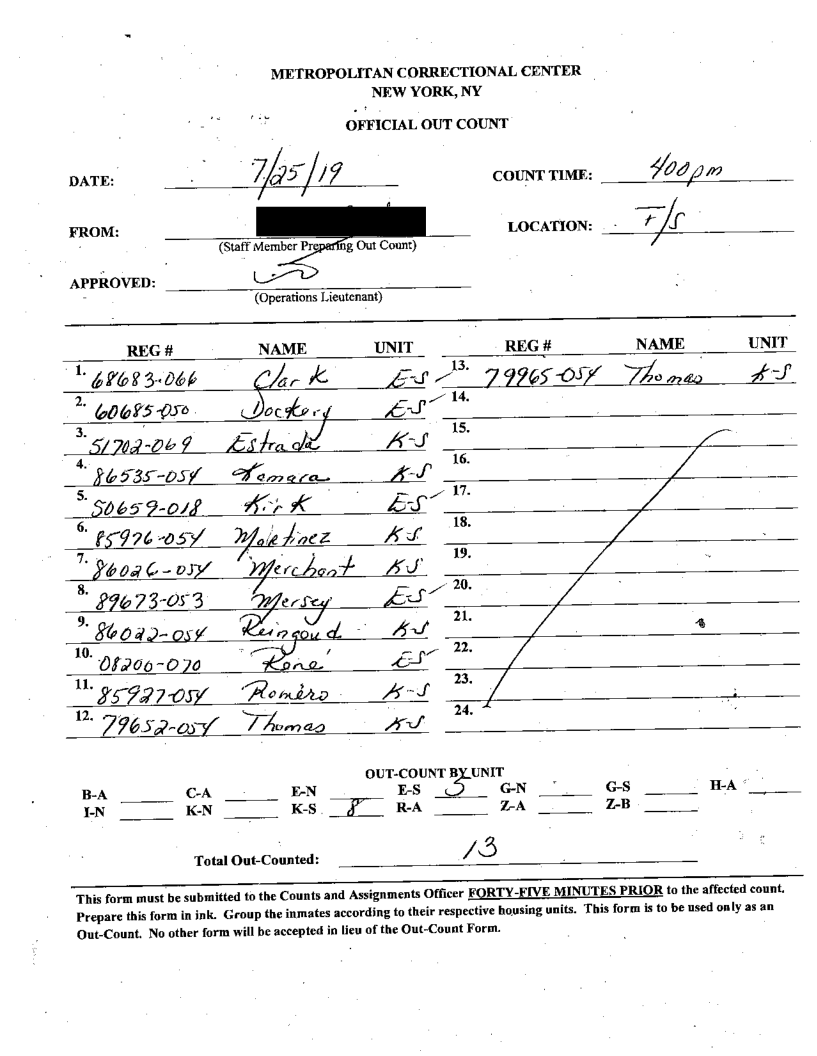 METROPOLITAN CORRECTIONAL CENTER
NEW YORK, NY
OFFICIAL OUT COUNT
DATE: 7/25/19 COUNT TIME: 400pm
FROM: LOCATION: F/S
(Staff Member Preparing Out Count)
APPROVED:
(Operations Lieutenant)
REG # NAME UNIT REG # NAME UNIT
1. 68683-066 Clark E-S 13. 79965-054 Thomas K-S
2. 60685-050 Dockery E-S 14.
3. 51702-069 Estrada K-S 15.
4. 86535-054 Kamara K-S 16.
5. 50659-018 Kirk E-S 17.
6. 85976-054 Martinez K-S 18.
7. 86026-054 Merchant KS 19.
8. 89673-053 Mersey E-S 20.
9. 86022-054 Reingoud K-S 21.
10. 08200-070 Rene E-S 22.
11. 85927-054 Romero K-S 23.
12. 79652-054 Thomas K-S 24.
OUT-COUNT BY UNIT
B-A C-A E-N E-S 5 G-N G-S H-A
I-N K-N K-S 8 R-A Z-A Z-B
Total Out-Counted: 13
This form must be submitted to the Counts and Assignments Officer FORTY-FIVE MINUTES PRIOR to the affected count.
Prepare this form in ink. Group the inmates according to their respective housing units. This form is to be used only as an
Out-Count. No other form will be accepted in lieu of the Out-Count Form.